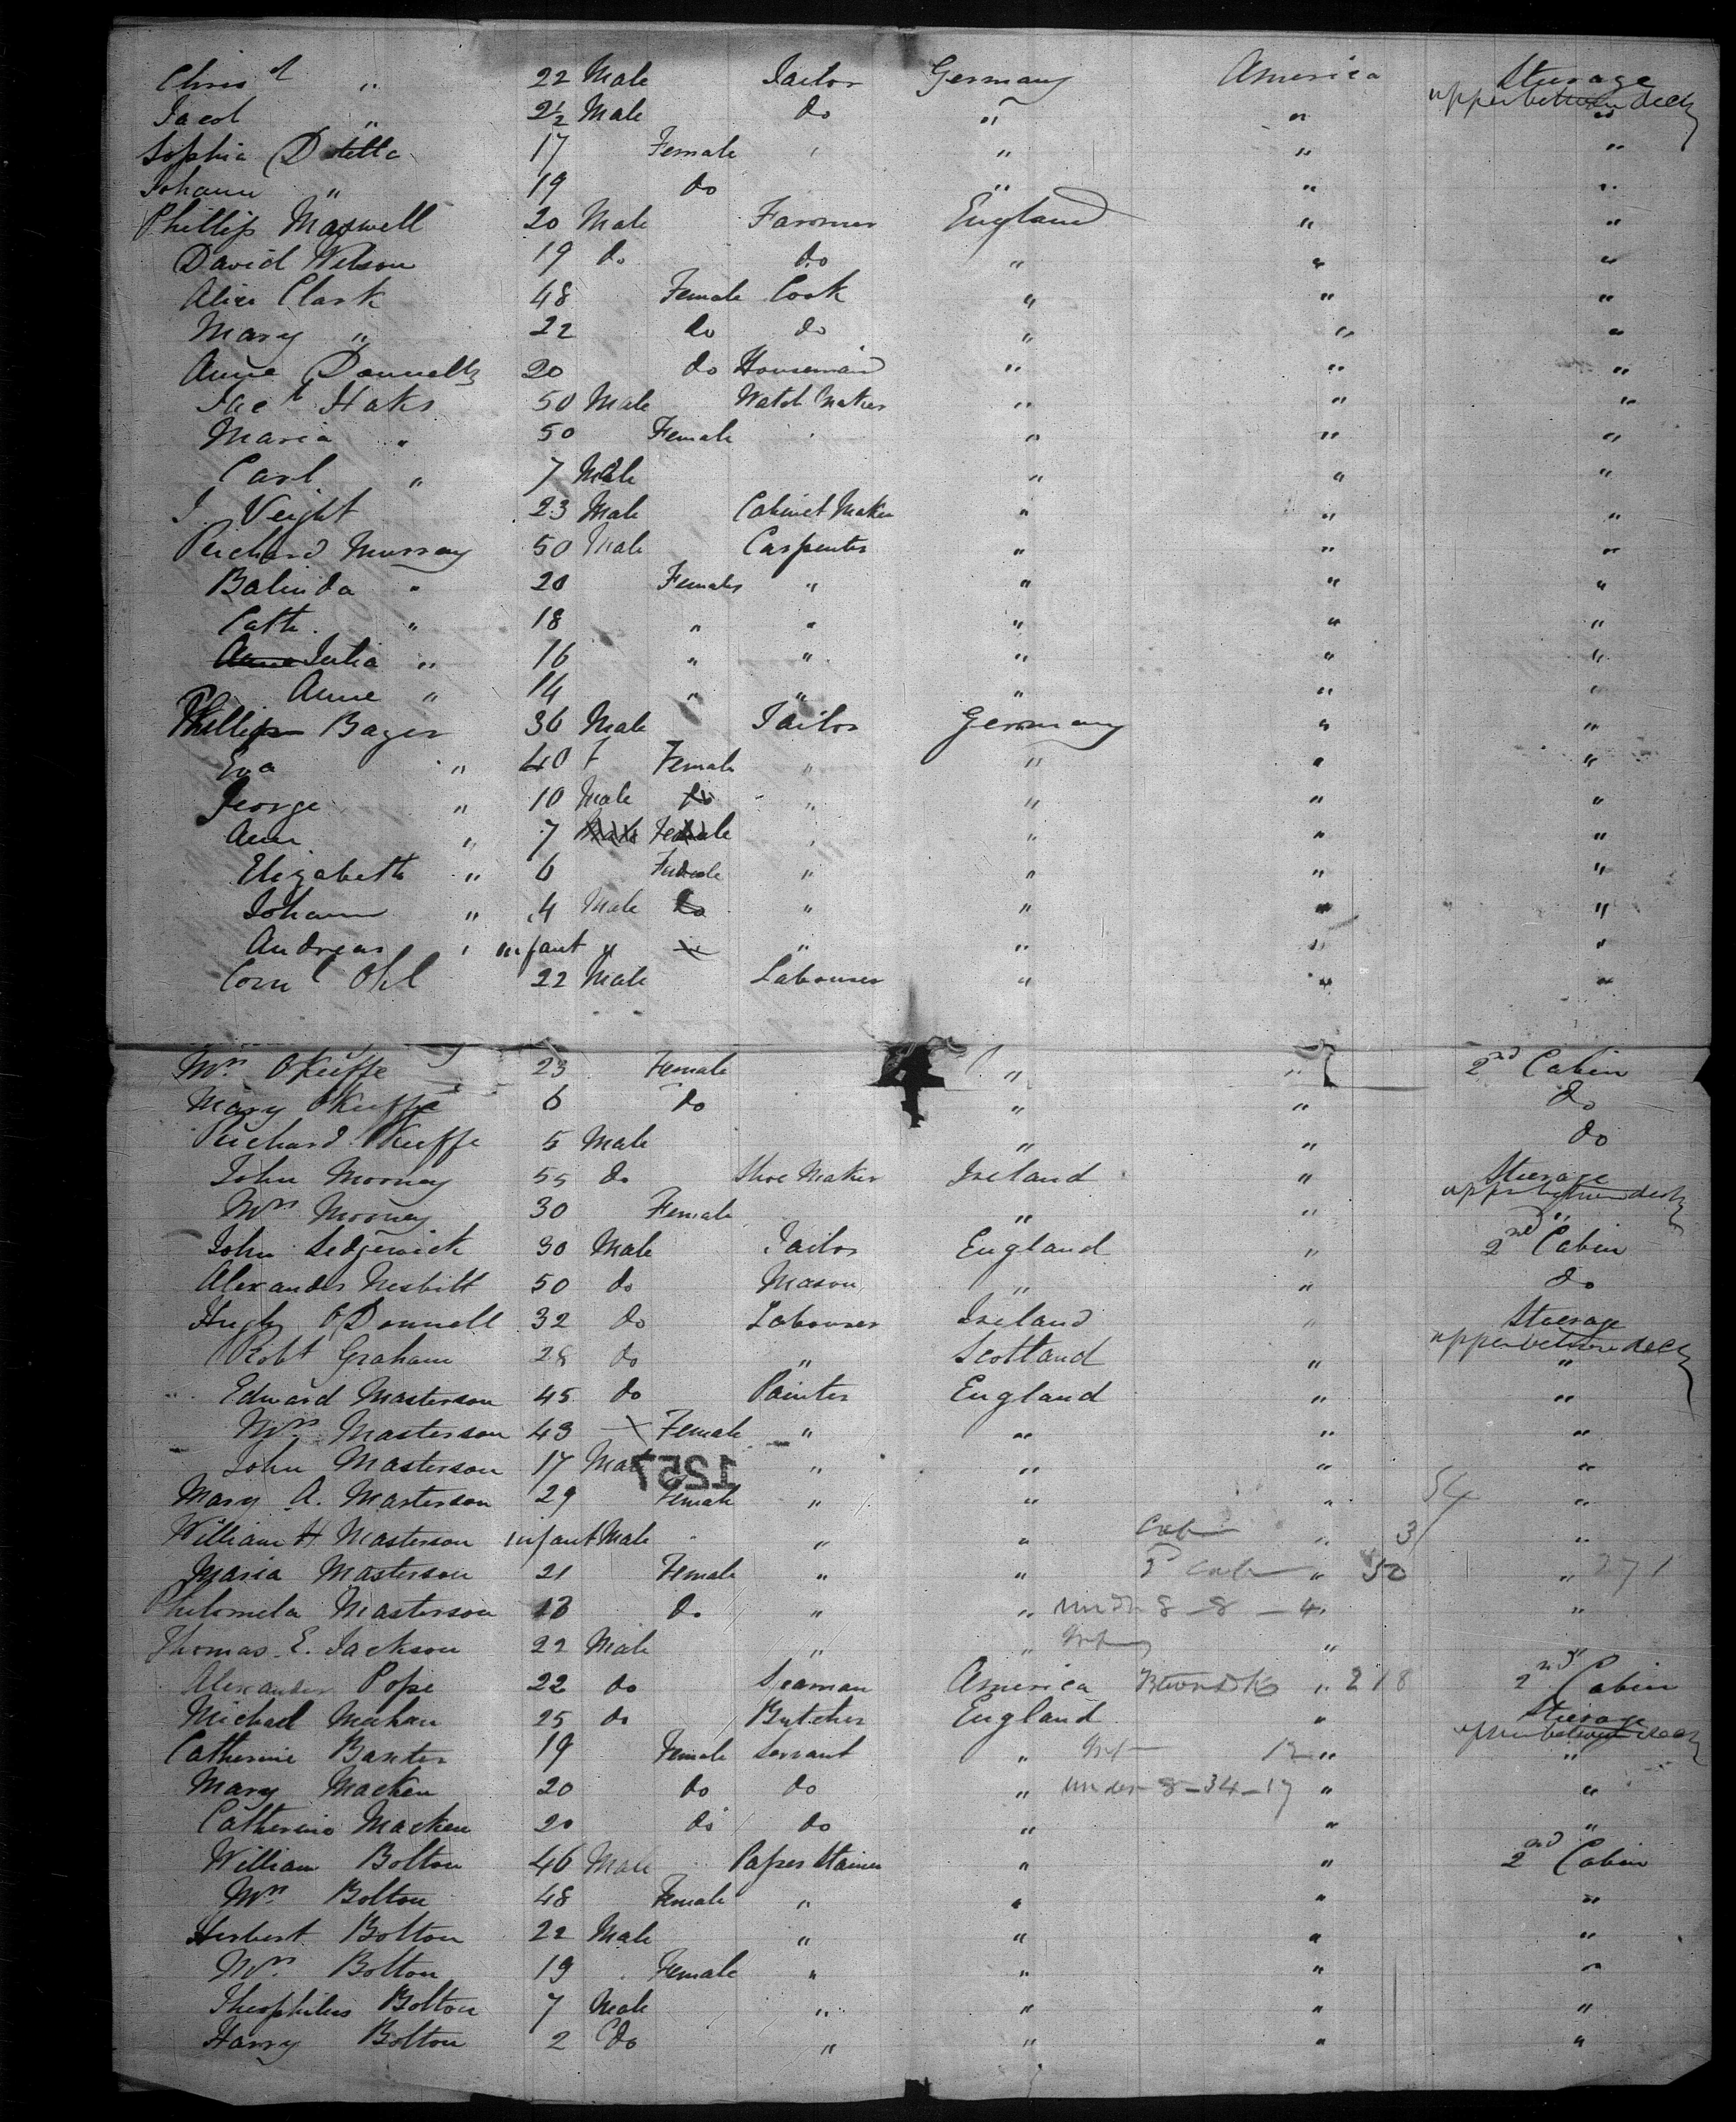 Chris d " 22 Male Tailor Germany America Steerage upper between decks
Jacob " 2½ Male do " " "
Sophia Ditetta 17 Female " " " "
Johann " 19 do " " "
Phillip Maxwell 20 Male Farmer England " "
David Wilson 19 do do " " "
Alice Clark 48 Female Cook " " "
Mary " 22 do do " " "
Anne Donnelly 20 do Housemaid " " "
Jac b Haks 50 Male Watch Maker " " "
Maria " 50 Female " " " "
Carl " 7 Male " " "
J. Veight 23 Male Cabinet Maker " " "
Richard Murray 50 Male Carpenter " " "
Balinda " 20 Female " " " "
Cath. " 18 " " " " "
Julia " 16 " " " " "
Anne " 14 " " " " "
Phillip Bayer 36 Male Tailor Germany " "
Eva " 40 F Female " " " "
George " 10 Male do " " " "
Ann " 7 Male Female " " " "
Elizabeth " 6 Female " " " "
Johann " 4 Male do " " " "
Andreas " infant " " " " "
Corn l Ohl 22 Male Labourer " " "
Mrs O'Keiffe 23 Female " " 2nd Cabin
Mary O'Keiffe 6 do " " do
Richard O'Keiffe 5 Male " " do
John Mooney 55 do Shoe Maker Ireland " Steerage upper between decks
Mrs Mooney 30 Female " " "
John Sedgewick 30 Male Tailor England " 2nd Cabin
Alexander Nesbitt 50 do Mason " " do
Hugh O'Donnell 32 do Labourer Ireland " Steerage upper between decks
Robt Graham 28 do " Scotland " "
Edward Masterson 45 do Painter England " "
Mrs Masterson 43 Female " " " "
John Masterson 17 Male " " " "
1257
Mary A. Masterson 29 Female " " " 54 "
William H Masterson infant Male " " Cab " 3 "
Maria Masterson 21 Female " " 2d Cab " 50 " 271
Philomela Masterson 13 do " " und 8 - 8 - 4 "
Thomas E. Jackson 22 Male " " Inf "
Alexander Pope 22 do Seaman America Btwn Dk " 218 2nd Cabin
Michael Mechan 25 do Butcher England " Steerage upper between decks
Catherine Baxter 19 Female Servant " Inf 12 " "
Mary Macken 20 do do " under 8 - 34 - 17 " "
Catherine Macken 20 do do " " "
William Bolton 46 Male Paper Stainer " " 2nd Cabin
Mrs Bolton 48 Female " " " "
Herbert Bolton 22 Male " " " "
Mrs Bolton 19 Female " " " "
Theophilus Bolton 7 Male " " " "
Harry Bolton 2 do " " " "